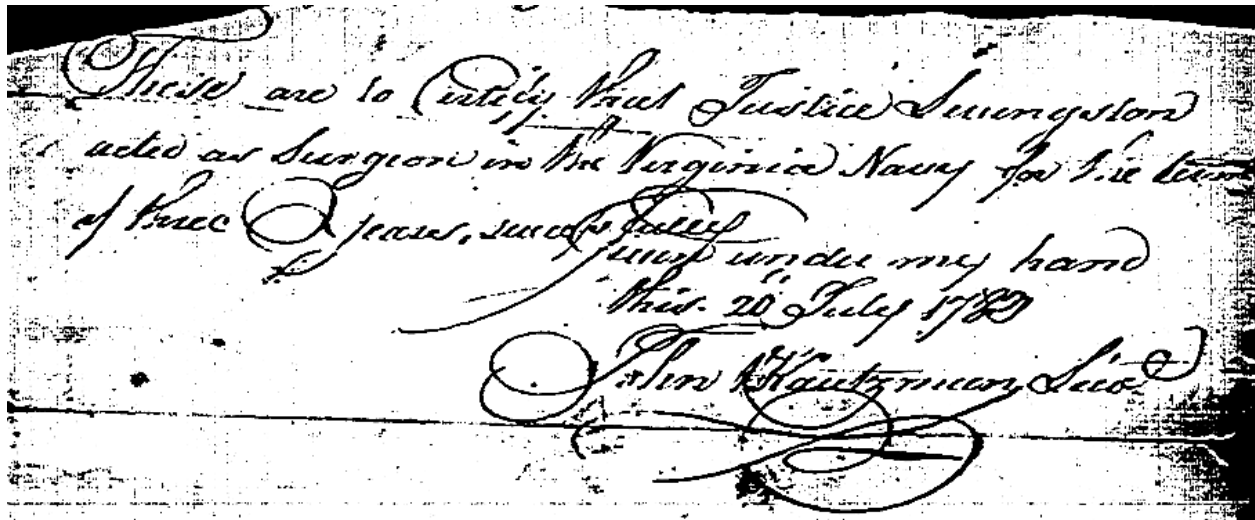 These are to Certify that Justice Livingston
acted as Surgeon in the Virginia Navy for the term
of three years,
Given under my hand
this 20 July 1782
John Kautzman,